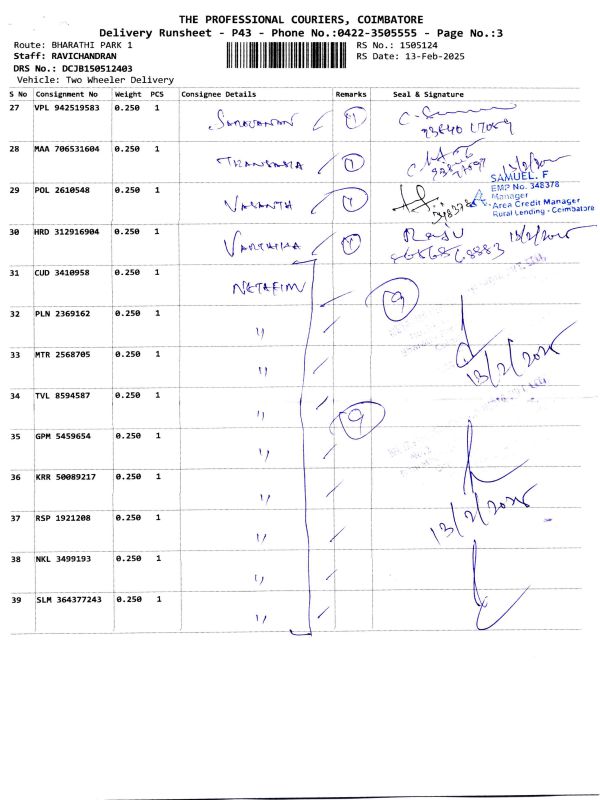 THE PROFESSIONAL COURIERS, COIMBATORE
Delivery Runsheet - P43 - Phone No.:0422-3505555 - Page No.:3
Route: BHARATHI PARK 1 RS No.: 1505124
Staff: RAVICHANDRAN RS Date: 13-Feb-2025
DRS No.: DCJB150512403
Vehicle: Two Wheeler Delivery
S No Consignment No Weight PCS Consignee Details Remarks Seal & Signature
27 VPL 942519583 0.250 1 SARAVANAN
28 MAA 706531604 0.250 1 13/2/2025
29 POL 2610548 0.250 1 VASANTH 348378
SAMUEL. F
EMP No. 348378
Manager
Area Credit Manager
Rural Lending - Coimbatore
30 HRD 312916904 0.250 1 RAJU 13/2/2025
31 CUD 3410958 0.250 1 NETAFIM 9
32 PLN 2369162 0.250 1 "
33 MTR 2568705 0.250 1 " 13/2/2025
34 TVL 8594587 0.250 1 " 9
35 GPM 5459654 0.250 1 "
36 KRR 50089217 0.250 1 "
37 RSP 1921208 0.250 1 " 13/2/2025
38 NKL 3499193 0.250 1 "
39 SLM 364377243 0.250 1 "